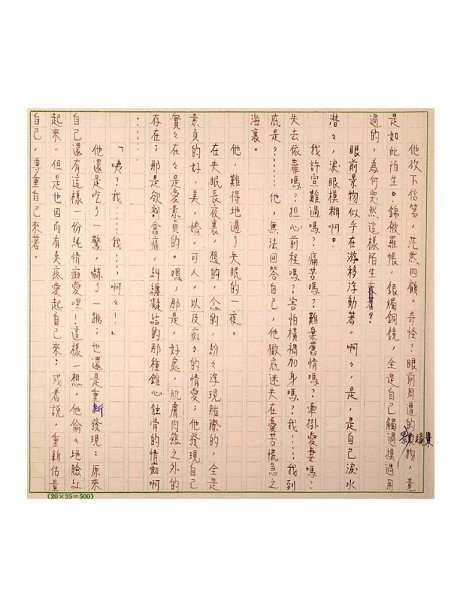 他放下信箋,茫然四顧。奇怪?眼前周遭的景物,竟
是如此陌生。錦 羅帳、銀燭銅鏡,全是自己觸過摸過用
過的,為何突然這樣陌生 ?
眼前景物似乎在游移浮動著。啊々,是,是自己淚水
潸々,淚眼模糊啊。
我許宣難過嗎?痛苦嗎?難棄舊情嗎?牽掛愛妻嗎?
失去依靠嗎?担心前程嗎?害怕橫禍加身嗎?我……我到
底是?……他,無法回答自己,他徹底迷失在憂苦慌急之
海裏。
他,難得地過了失眠的一夜。
在失眠長夜裏,想的,念的,紛々浮現腦際的,全是
素貞的好、美、德,可人,以及痴々的情愛,他發現自己
實々在々是愛素貞的。嗯,那是,好處,肌膚肉慾之外的
存在?那是欲割會痛,糾纏凝結的那種錐心蝕骨的情痴啊
……
「咦?我……我……啊々!」
他還是吃了一驚,嚇了一跳,也還是重新發現:原來
自己還有這樣一份純情痴愛哩!這樣一想,他偷々地臉紅
起來。但是也因而有 愛起自己來?或者說,重新估量
自己,尊重自己來著。
(20×25=500)